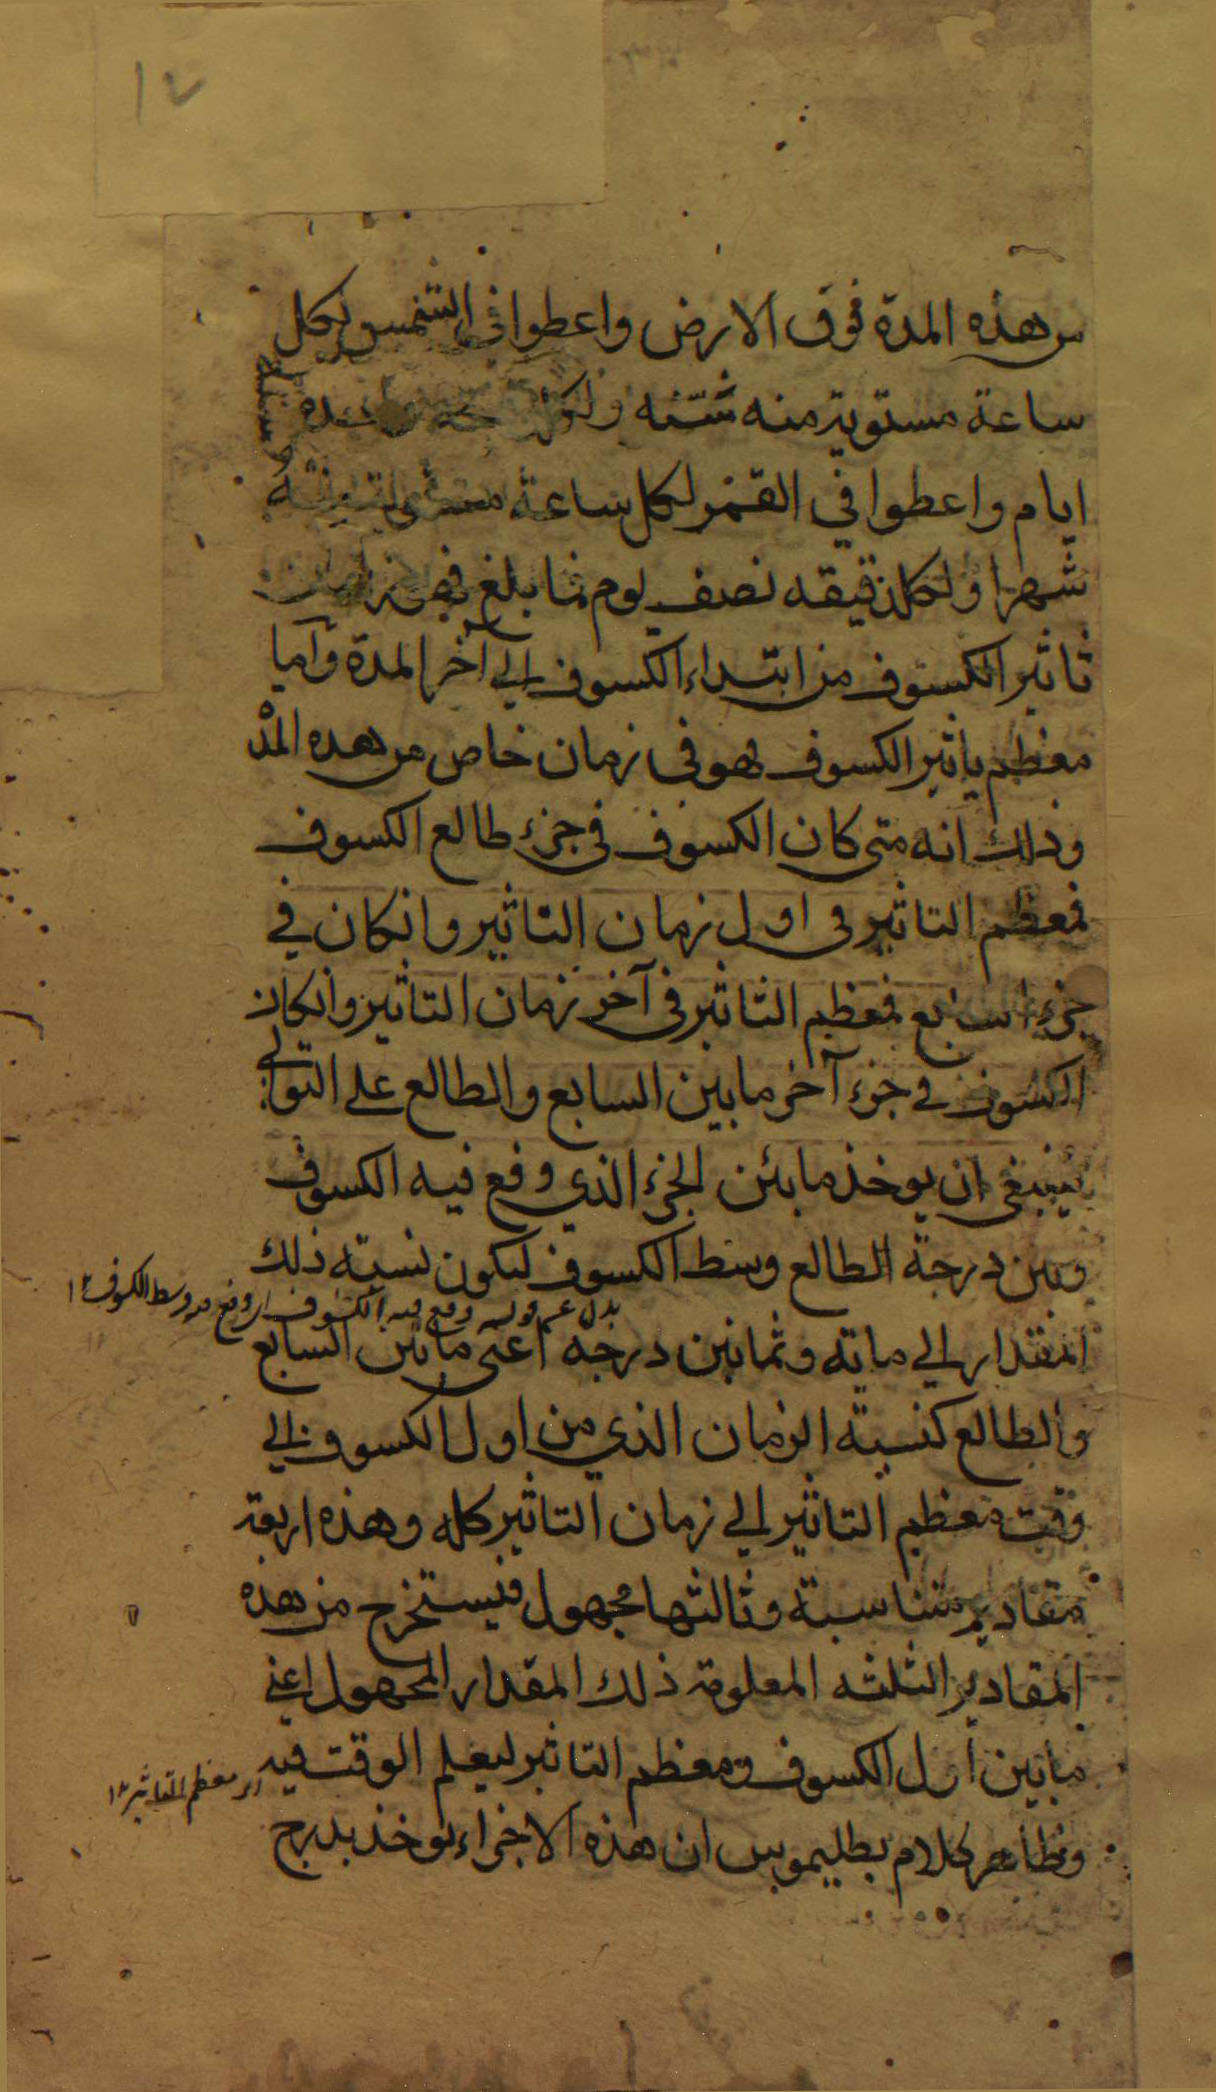 ١٧
من هذه المدة فوق الارض واعطوا في الشمس لكل
ساعة مستوية منه سنه ولكل
ايام واعطوا في القمر لكل ساعة
شهرا ولكل دقيقه نصف يوم فما بلغ فهو زمان
تاثير الكسوف من ابتداء الكسوف الى آخر المدة واما
معظم تاثير الكسوف فهو في زمان خاص من هذه المدة
وذلك انه متى كان الكسوف في جزء طالع الكسوف
فمعظم التاثير في اول زمان التاثير وانكان في
جزء السابع فمعظم التاثير في آخر زمان التاثير وانكان
الكسوف في جزء آخر ما بين السابع والطالع على التوالي
فينبغي ان يوخذ ما بين الجزء الذي وقع فيه الكسوف
وبين درجة الطالع وسط الكسوف ليكون نسبة ذلك
بدل عن قوله وقع فيه الكسوف اي وقع فيه وسط الكسوف ١٢
المقدار الي مايه وثمانين درجه اعني ما بين السابع
والطالع كنسبة الزمان الذي من اول الكسوف الي
وقت معظم التاثير الي زمان التاثير كله وهذه اربعة
مقادير متناسبة وثالثها مجهول فيستخرج من هذه
المقادير الثلثه المعلومة ذلك المقدار المجهول اعني
ما بين اول الكسوف ومعظم التاثير ليعلم الوقت فيه
اي معظم التاثير ١٢
وظاهر كلام بطليموس ان هذه الاجزاء يوخذ بدرج